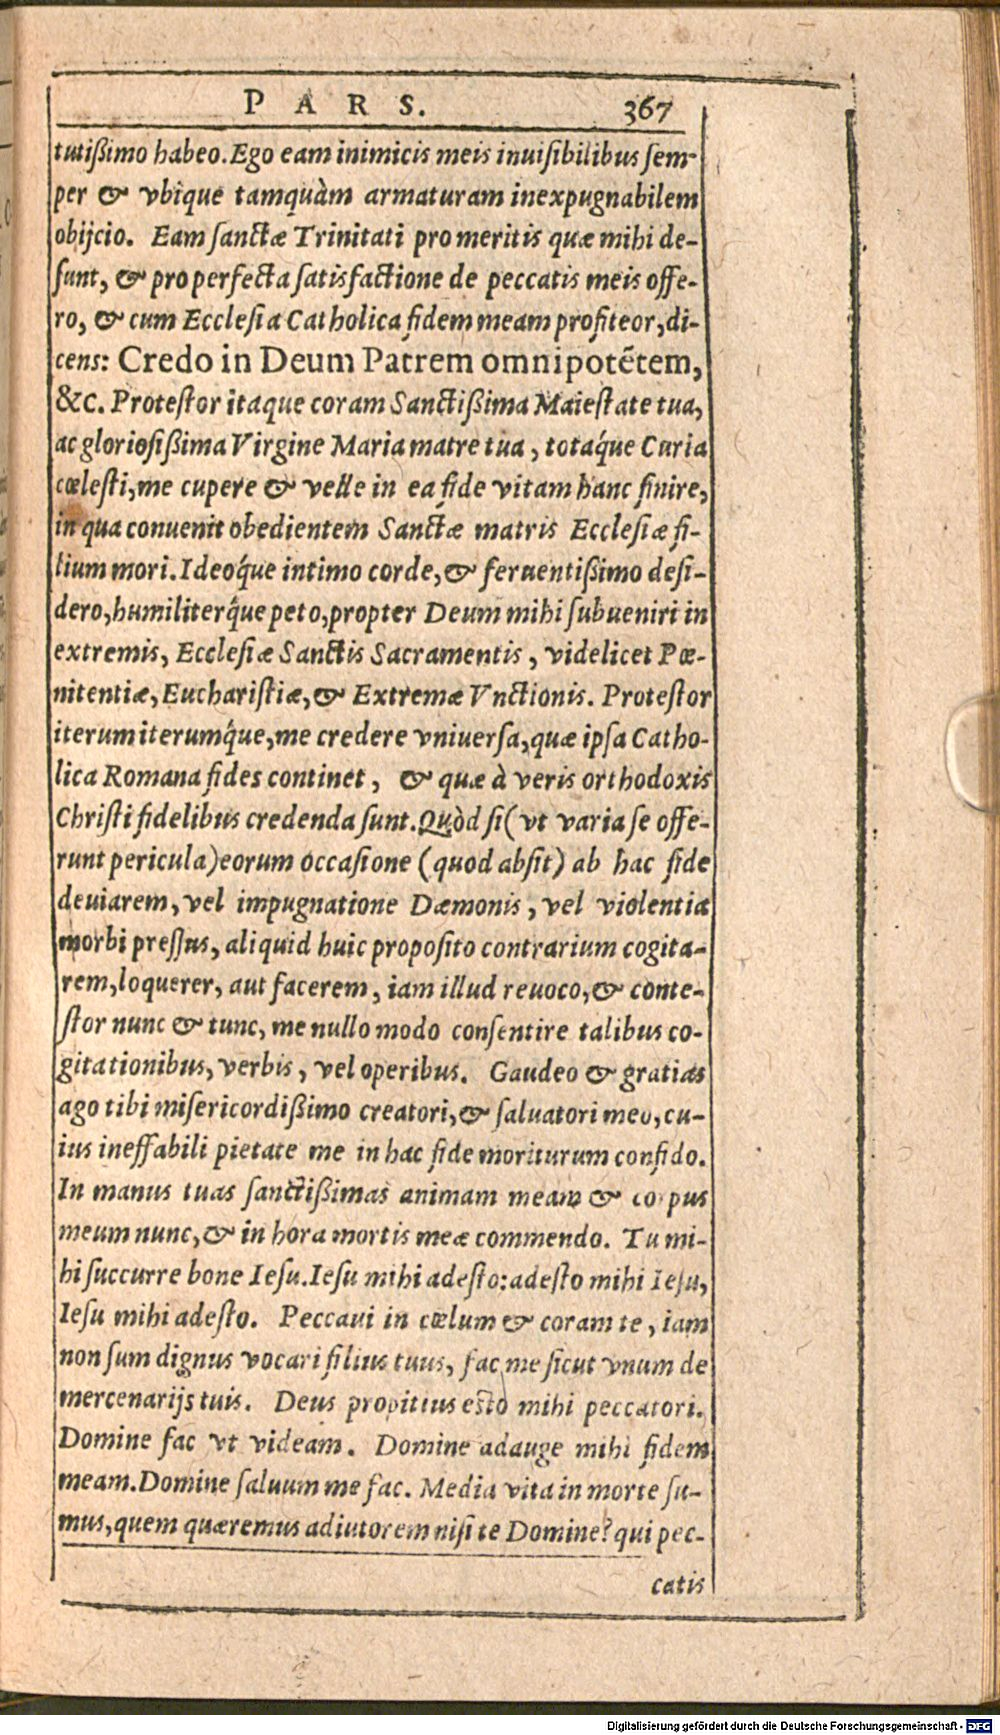 PARS. 367
tutißimo habeo. Ego eam inimicis meis inuisibilibus sem-
per & vbique tamquàm armaturam inexpugnabilem
obijcio. Eam sanctæ Trinitati pro meritis quæ mihi de-
sunt, & pro perfecta satisfactione de peccatis meis offe-
ro, & cum Ecclesia Catholica fidem meam profiteor, di-
cens: Credo in Deum Patrem omnipotẽtem,
&c. Protestor itaque coram Sanctißima Maiestate tua,
ac gloriosißima Virgine Maria matre tua, totáque Curia
cœlesti, me cupere & velle in ea fide vitam hanc finire,
in qua conuenit obedientem Sanctæ matris Ecclesiæ fi-
lium mori. Ideóque intimo corde, & feruentißimo desi-
dero, humiliterq́ue peto, propter Deum mihi subueniri in
extremis, Ecclesiæ Sanctis Sacramentis, videlicet Pœ-
nitentiæ, Eucharistiæ, & Extremæ Vnctionis. Protestor
iterum iterumq́ue, me credere vniuersa, quæ ipsa Catho-
lica Romana fides continet, & quæ à veris orthodoxis
Christi fidelibus credenda sunt. Quòd si (vt varia se offe-
runt pericula) eorum occasione (quod absit) ab hac fide
deuiarem, vel impugnatione Dæmonis, vel violentia
morbi pressus, aliquid huic proposito contrarium cogita-
rem, loquerer, aut facerem, iam illud reuoco, & conte-
stor nunc & tunc, me nullo modo consentire talibus co-
gitationibus, verbis, vel operibus. Gaudeo & gratias
ago tibi misericordißimo creatori, & saluatori meo, cu-
ius ineffabili pietate me in hac fide moriturum confido.
In manus tuas sanctißimas animam meam & corpus
meum nunc, & in hora mortis meæ commendo. Tu mi-
hi succurre bone Iesu. Iesu mihi adesto: adesto mihi Iesu,
Iesu mihi adesto. Peccaui in cœlum & coram te, iam
non sum dignus vocari filius tuus, fac me sicut vnum de
mercenarijs tuis. Deus propitius esto mihi peccatori.
Domine fac vt videam. Domine adauge mihi fidem
meam. Domine saluum me fac. Media vita in morte su-
mus, quem quæremus adiutorem nisi te Domine? qui pec-
catis
Digitalisierung gefördert durch die Deutsche Forschungsgemeinschaft - DFG